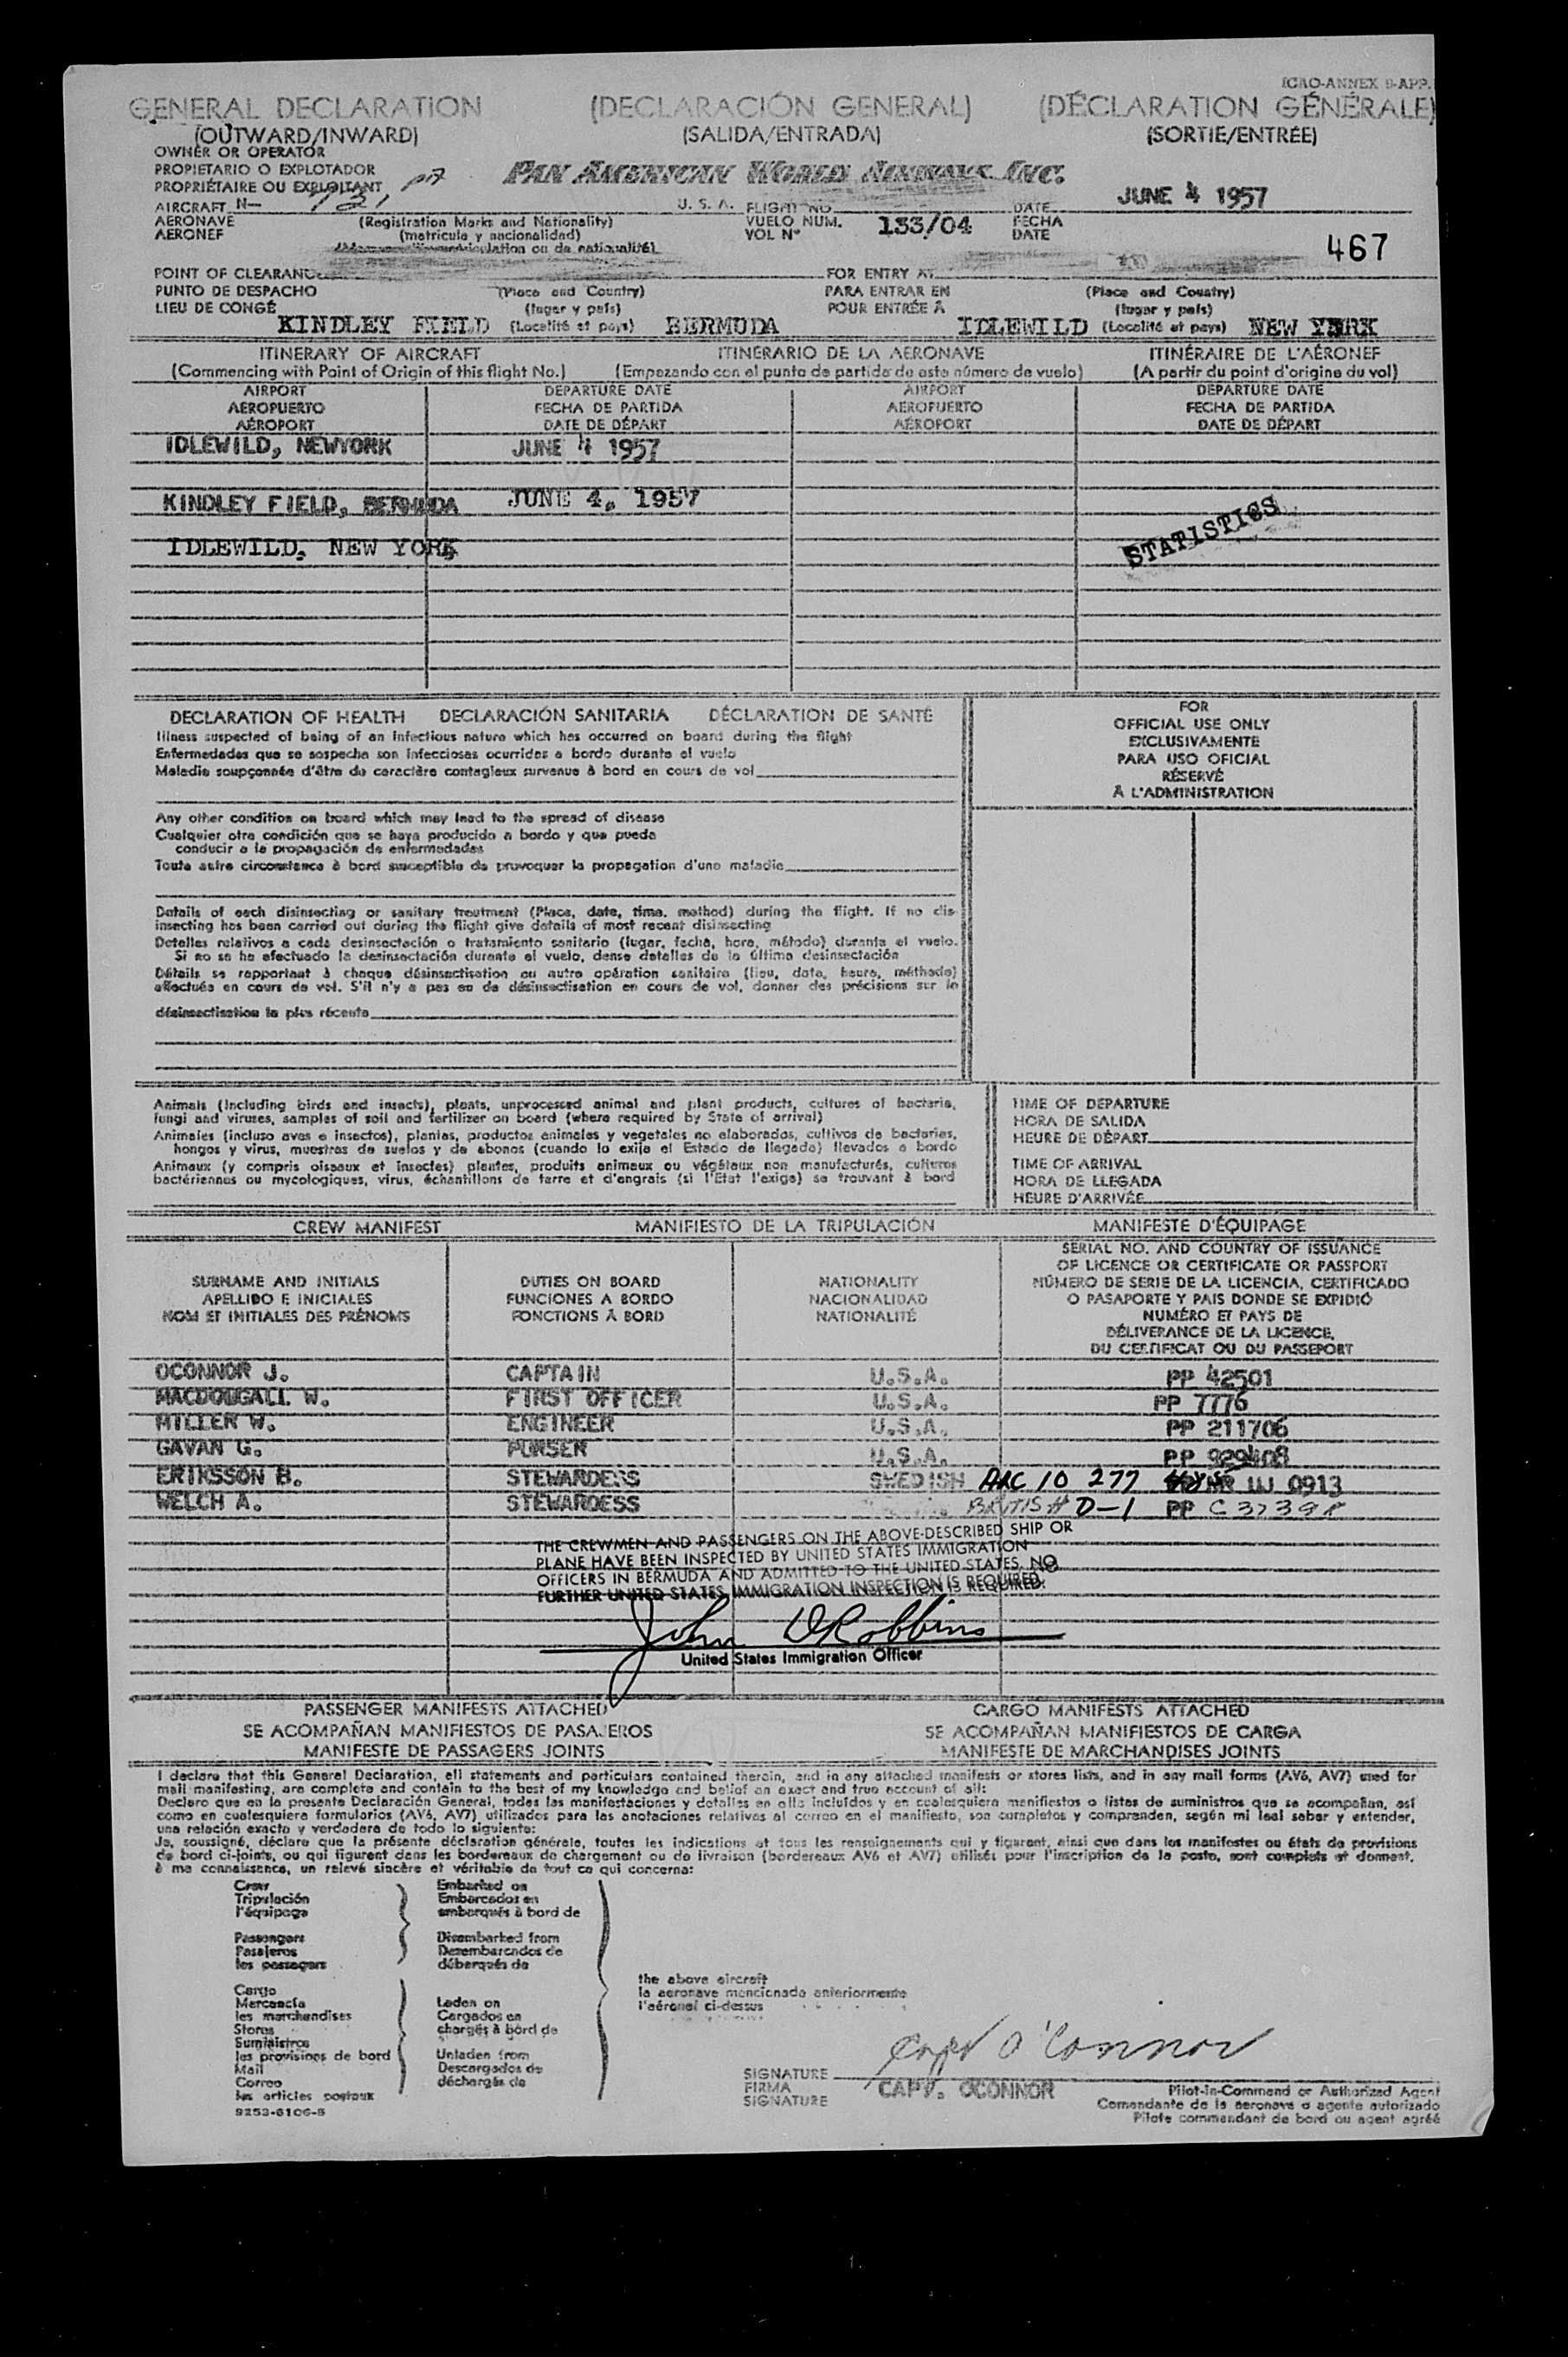 ICAO-ANNEX 9-APP.
GENERAL DECLARATION (DECLARACIÓN GENERAL) (DÉCLARATION GÉNÉRALE)
(OUTWARD/INWARD) (SALIDA/ENTRADA) (SORTIE/ENTRÉE)
OWNER OR OPERATOR
PROPIETARIO O EXPLOTADOR
PROPRIÉTAIRE OU EXPLOITANT
PAN AMERICAN WORLD AIRWAYS INC.
AIRCRAFT N- U. S. A. FLIGHT NO. DATE JUNE 4 1957
AERONAVE (Registration Marks and Nationality) VUELO NUM. 133/04 FECHA
AERONEF (matricula y nacionalidad) VOL Nº DATE
467
POINT OF CLEARANCE FOR ENTRY AT
PUNTO DE DESPACHO (Place and Country) PARA ENTRAR EN (Place and Country)
LIEU DE CONGÉ (lugar y país) POUR ENTRÉE À (lugar y país)
KINDLEY FIELD (Localité et pays) BERMUDA IDLEWILD (Localité et pays) NEW YORK
ITINERARY OF AIRCRAFT ITINERARIO DE LA AERONAVE ITINÉRAIRE DE L'AÉRONEF
(Commencing with Point of Origin of this flight No.) (Empezando con el punto de partida de este número de vuelo) (A partir du point d'origine du vol)
AIRPORT DEPARTURE DATE AIRPORT DEPARTURE DATE
AEROPUERTO FECHA DE PARTIDA AEROPUERTO FECHA DE PARTIDA
AÉROPORT DATE DE DÉPART AÉROPORT DATE DE DÉPART
IDLEWILD, NEWYORK JUNE 4 1957
KINDLEY FIELD, BERMUDA JUNE 4, 1957
STATISTICS
IDLEWILD, NEW YORK
DECLARATION OF HEALTH DECLARACIÓN SANITARIA DÉCLARATION DE SANTÉ
Illness suspected of being of an infectious nature which has occurred on board during the flight
Enfermedades que se sospecha son infecciosas ocurridas a bordo durante el vuelo
Maladie soupçonnée d'être du caractère contagieux survenue à bord en cours de vol
FOR
OFFICIAL USE ONLY
EXCLUSIVAMENTE
PARA USO OFICIAL
RÉSERVÉ
À L'ADMINISTRATION
Any other condition on board which may lead to the spread of disease
Cualquier otra condición que se haya producido a bordo y que pueda
conducir a la propagación de enfermedades
Toute autre circonstance à bord susceptible de provoquer la propagation d'une maladie
Details of each disinsecting or sanitary treatment (Place, date, time, method) during the flight. If no dis-
insecting has been carried out during the flight give details of most recent disinsecting
Detalles relativos a cada desinsectación o tratamiento sanitario (lugar, fecha, hora, método) durante el vuelo.
Si no se ha efectuado la desinsectación durante el vuelo, dense detalles de la última desinsectación
Détails se rapportant à chaque désinsectisation ou autre opération sanitaire (lieu, date, heure, méthode)
effectués en cours de vol. S'il n'y a pas eu de désinsectisation en cours de vol, donner des précisions sur la
désinsectisation la plus récente
Animals (Including birds and insects), plants, unprocessed animal and plant products, cultures of bacteria,
fungi and viruses, samples of soil and fertilizer on board (where required by State of arrival)
Animales (incluso aves e insectos), plantas, productos animales y vegetales no elaborados, cultivos de bacterias,
hongos y virus, muestras de suelos y de abonos (cuando lo exija el Estado de llegada) llevados a bordo
Animaux (y compris oiseaux et insectes) plantes, produits animaux ou végétaux non manufacturés, cultures
bactériennes ou mycologiques, virus, échantillons de terre et d'engrais (si l'Etat l'exige) se trouvant à bord
TIME OF DEPARTURE
HORA DE SALIDA
HEURE DE DÉPART
TIME OF ARRIVAL
HORA DE LLEGADA
HEURE D'ARRIVÉE
CREW MANIFEST MANIFIESTO DE LA TRIPULACIÓN MANIFESTE D'ÉQUIPAGE
SURNAME AND INITIALS DUTIES ON BOARD NATIONALITY
APELLIDO E INICIALES FUNCIONES A BORDO NACIONALIDAD
NOM ET INITIALES DES PRÉNOMS FONCTIONS À BORD NATIONALITÉ
SERIAL NO. AND COUNTRY OF ISSUANCE
OF LICENCE OR CERTIFICATE OR PASSPORT
NÚMERO DE SERIE DE LA LICENCIA, CERTIFICADO
O PASAPORTE Y PAIS DONDE SE EXPIDIÓ
NUMÉRO ET PAYS DE
DÉLIVERANCE DE LA LICENCE,
DU CERTIFICAT OU DU PASSEPORT
OCONNOR J. CAPTAIN U.S.A. PP 42501
MACDOUGALL W. FIRST OFFICER U.S.A. PP 7776
MILLER W. ENGINEER U.S.A. PP 211706
GAVAN G. PURSER U.S.A. PP
ERIKSSON B. STEWARDESS SWEDISH ARC 10 277 0913
WELCH A. STEWARDESS BRITISH D-1 PP C 37398
THE CREWMEN AND PASSENGERS ON THE ABOVE-DESCRIBED SHIP OR
PLANE HAVE BEEN INSPECTED BY UNITED STATES IMMIGRATION
OFFICERS IN BERMUDA AND ADMITTED TO THE UNITED STATES. NO
FURTHER UNITED STATES IMMIGRATION INSPECTION IS REQUIRED.
John D Robbins
United States Immigration Officer
PASSENGER MANIFESTS ATTACHED CARGO MANIFESTS ATTACHED
SE ACOMPAÑAN MANIFIESTOS DE PASAJEROS SE ACOMPAÑAN MANIFIESTOS DE CARGA
MANIFESTE DE PASSAGERS JOINTS MANIFESTE DE MARCHANDISES JOINTS
I declare that this General Declaration, all statements and particulars contained therein, and in any attached manifests or stores lists, and in any mail forms (AV6, AV7) used for
mail manifesting, are complete and contain to the best of my knowledge and belief an exact and true account of all:
Declaro que en la presente Declaración General, todas las manifestaciones y detalles en ella incluidos y en cualesquiera manifiestos o listas de suministros que se acompañan, así
como en cualesquiera formularios (AV6, AV7) utilizados para las anotaciones relativas al correo en el manifiesto, son completos y comprenden, según mi leal saber y entender,
una relación exacta y verdadera de todo lo siguiente:
Je, soussigné, déclare que la présente déclaration générale, toutes les indications et tous les renseignements qui y figurent, ainsi que dans les manifestes ou états de provisions
de bord ci-joints, ou qui figurent dans les bordereaux de chargement ou de livraison (bordereaux AV6 et AV7) utilisés pour l'inscription de la poste, sont complets et donnent,
à ma connaissance, un relevé sincère et véritable de tout ce qui concerne:
Crew Embarked on
Tripulación Embarcados en
l'équipage embarqués à bord de
Passengers Disembarked from
Pasajeros Desembarcados de
les passagers débarqués de
the above aircraft
la aeronave mencionada anteriormente
l'aéronef ci-dessus
Cargo
Mercancía Laden on
les marchandises Cargados en
Stores chargés à bord de
Suministros
les provisions de bord Unladen from
Mail Descargados de
Correo déchargés de
les articles postaux
9253-6106-5
Capt O'Connor
SIGNATURE
FIRMA CAPT. OCONNOR
SIGNATURE
Pilot-in-Command or Authorized Agent
Comandante de la aeronave o agente autorizado
Pilote commandant de bord ou agent agréé